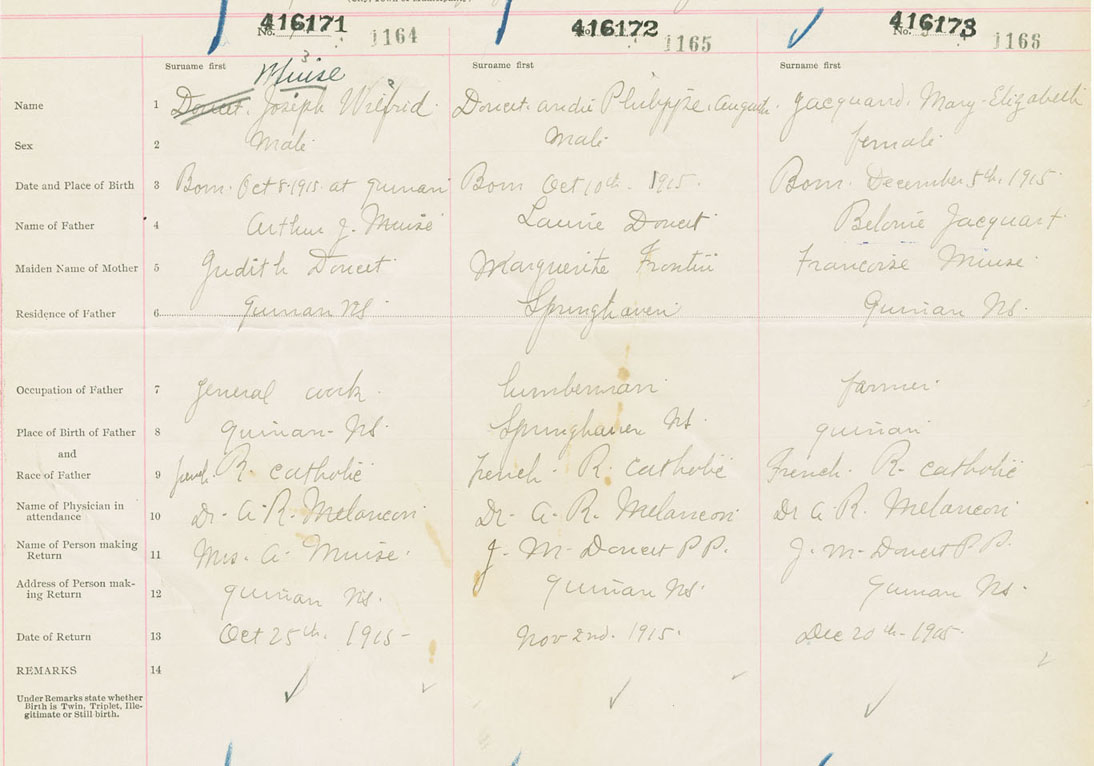 416171 416172 416173
No. No. No.
1164 1165 1166
Surname first Surname first Surname first
Muise
Name 1 Doucet. Joseph Wilfrid. Doucet. André Philippe. August. Jacquard. Mary-Elizabeth
Sex 2 Male Male female
Date and Place of Birth 3 Born. Oct 8-1915 at Quinan Born Oct 10th. 1915. Born. December 5th, 1915.
Name of Father 4 Arthur J. Muise Laurie Doucet Belonie Jacquart
Maiden Name of Mother 5 Judith Doucet Marguerite Francoise Miuse
Residence of Father 6 Quinan NS. Springhaven Quinan Ns.
Occupation of Father 7 general work. lumberman. farmer.
Place of Birth of Father 8 Quinan- NS. Springhaven NS. Quinan
and
Race of Father 9 french. R. Catholic French. R. Catholic French. R- Catholic
Name of Physician in
attendance 10 Dr. A. R. Melancon Dr- A. R. Melancon Dr A. R. Melancon
Name of Person making
Return 11 Mrs. A. Muise. J. M- Doucet P P. J. M- Doucet P P.
Address of Person mak-
ing Return 12 Quinan Ns. Quinan Ns. Quinan Ns.
Date of Return 13 Oct 25th. 1915- Nov 2nd. 1915. Dec 20th- 1905.
REMARKS 14
Under Remarks state whether
Birth is Twin, Triplet, Ille-
gitimate or Still birth.